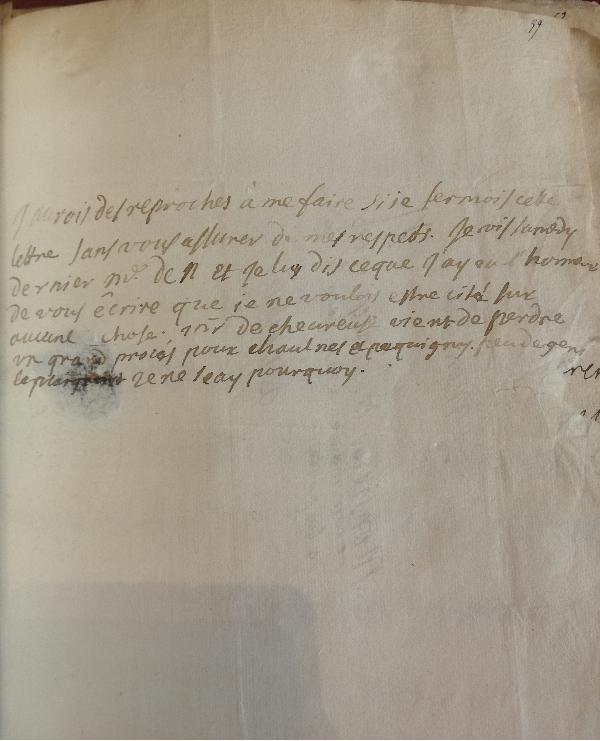 59
J'aurois des reproches a me faire si je fermois cette
lettre sans vous assurer de mes respets. Je vis samedy
dernier md. de N et je luy dis ceque j'ay eu l'honneur
de vous êcrire que je ne voulois estre cité sur
aucune chose; mr. de cheureuse vient de perdre
vn grand procés pour chaulnes et pequigny. peu de gens
le pourquoy. je ne scay pourquoy.